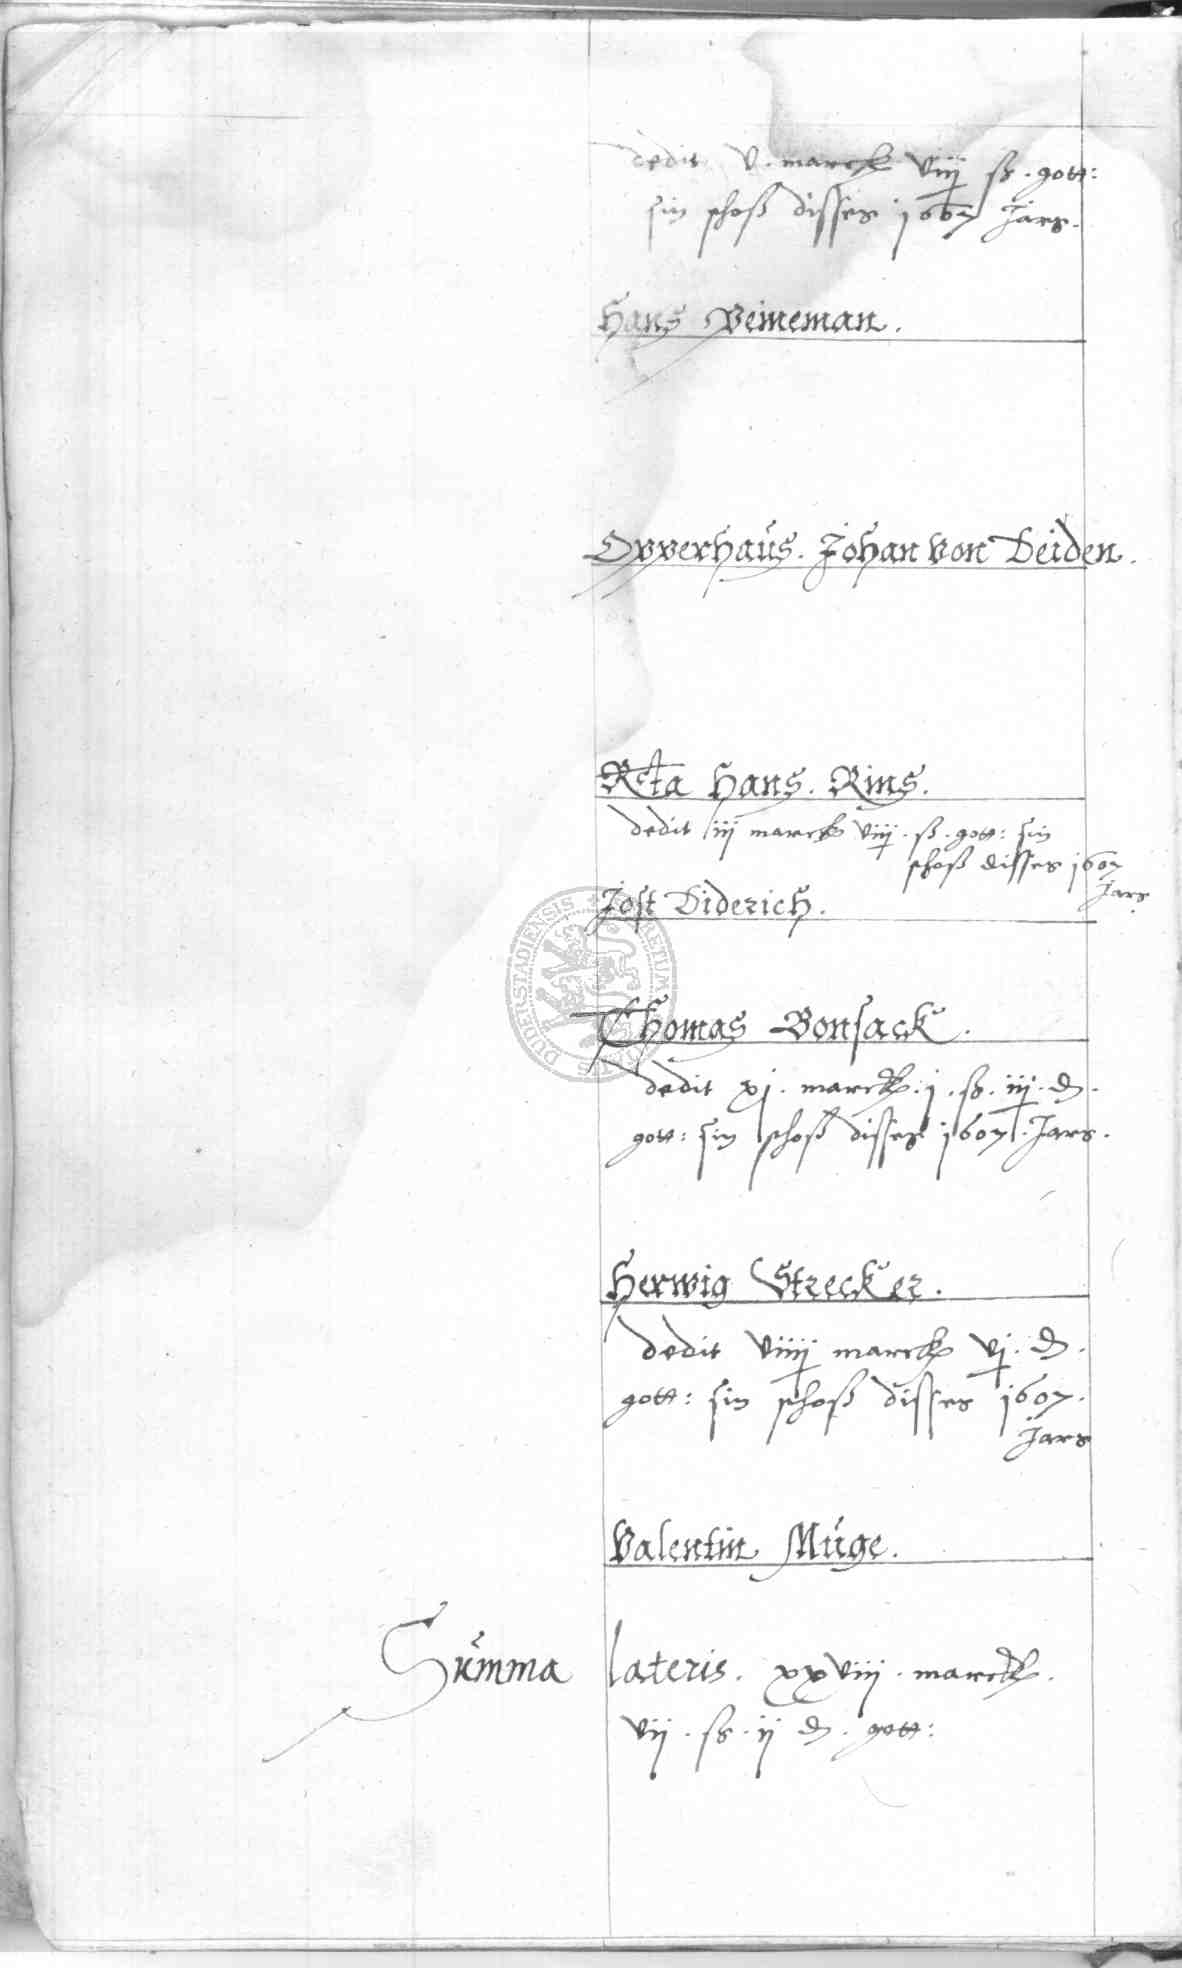 dedit v. marck viij ß. gott:
sin schoß disses 1607 Jars.
Hans Veineman.
Opperhaus. Johan von Deiden.
Rcta Hans. Rins.
dedit iij marck viij. ß. gott: sin
schoß disses 1607
Jars.
Jost Diderich.
Thomas Bonsack.
dedit xj. marck. j. ß. iij. ₰.
gott: sin schoß disses 1607. Jars.
Herwig Strecker.
dedit viiij marck vj. ₰.
gott: sin schoß disses 1607.
Jars
Valentin Müge.
Summa lateris. xxviij. marck.
vij. ß. ij ₰. gott:
DUDERSTADIENSIS